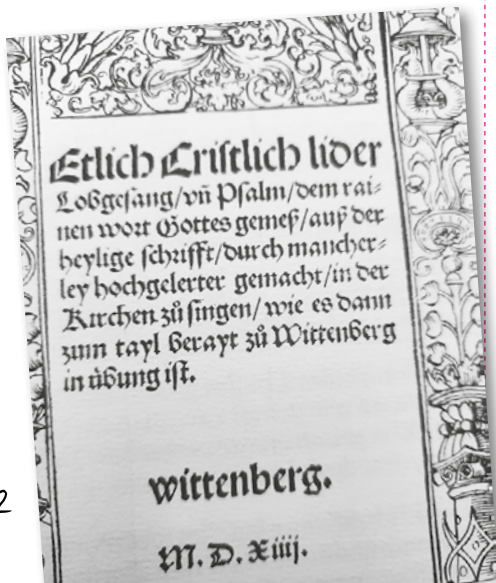 Etlich Cristlich lider
Lobgesang/vñ Psalm/dem rai⸗
nen wort Gottes gemeß/auß der
heylige schrifft/durch mancher⸗
ley hochgelerter gemacht/in der
Kirchen zů singen/wie es dann
zum tayl berayt zů Wittenberg
in übung ist.
wittenberg.
M. D. Xiiij.
2